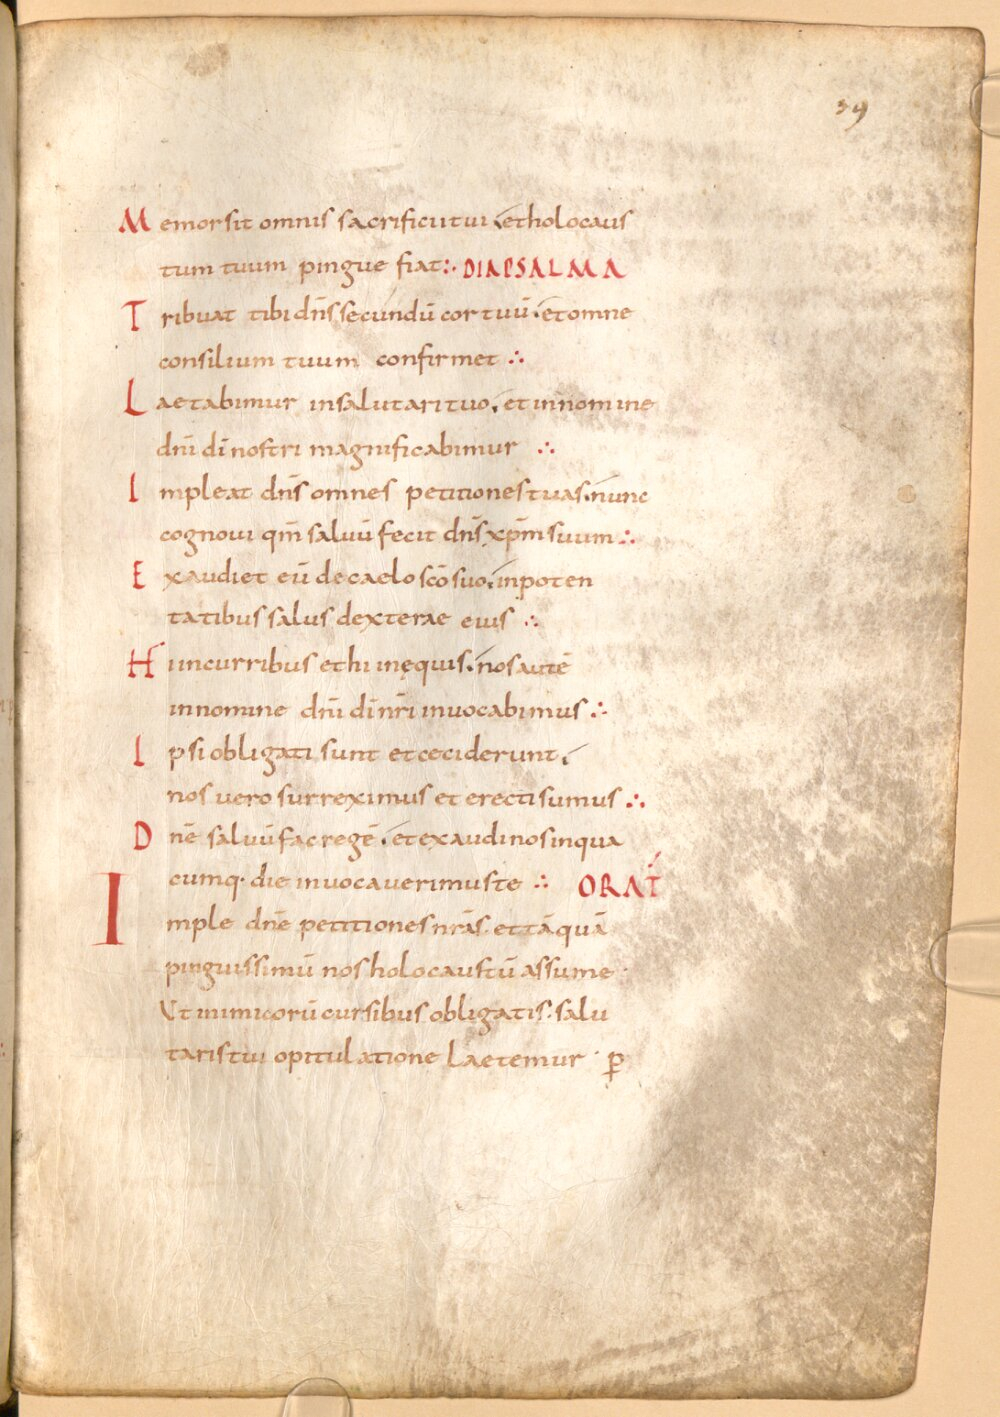 39
Memor sit omnis sacrificii tui et holocaus
tum tuum pingue fiat:· DIAPSALMA
Tribuat tibi dn̄s secundū cor tuū· et omne
consilium tuum confirmet ∴
Laetabimur in salutari tuo· et in nomine
dn̄i dī nostri magnificabimur ∴
Impleat dn̄s omnes petitiones tuas· nunc
cognovi qm̄ salvū fecit dn̄s xp̄m suum ∴
Exaudiet eū de caelo sc̄o suo· in poten
tatibus salus dexterae eius ∴
Hi in curribus et hi in ęquis· nos autē
in nomine dn̄i dī nr̄i invocabimus ∴
Ipsi obligati sunt et ceciderunt·
nos vero surreximus et erecti sumus ∴
Dn̄e salvū fac regē· et exaudi nos in qua
cumq· die invocaverimus te ∴ ORAT̄
Imple dn̄e petitiones nr̄as· et tāquā
pinguissimū nos holocaustū assume·
Ut inimicorū cursibus obligatis· salu
taris tui opitulatione laetemur· ꝑ